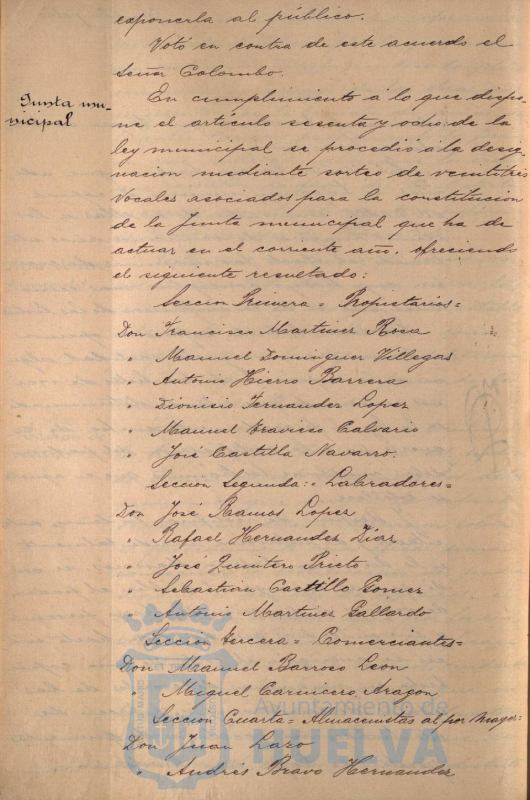 exponerla al público.
Votó en contra de este acuerdo el
Señor Colombo.
Junta mu-
nicipal
En cumplimiento á lo que dispo-
ne el artículo sesenta y ocho de la
ley municipal se procedió á la desig-
nacion mediante sorteo de veintitres
Vocales asociados para la constitucion
de la Junta municipal que ha de
actuar en el corriente año, ofreciendo
el siguiente resultado:
Seccion Primera = Propietarios =
Don Francisco Martinez Rosa
" Manuel Dominguez Villegas
" Antonio Hierro Barrera
" Dionisio Fernandez Lopez
" Manuel Travieso Calvario
" José Castilla Navarro.
Seccion Segunda: = Labradores =
Don José Ramos Lopez
" Rafael Hernandez Díaz
" José Quintero Prieto
" Sebastian Castillo Gomez
" Antonio Martinez Gallardo
Seccion Tercera = Comerciantes =
Don Manuel Barroso Leon
" Miguel Carnicero Aragon
Seccion Cuarta = Almacenistas al por mayor =
Don Juan Lazo
" Andrés Bravo Hernandez
Ayuntamiento de
HUELVA